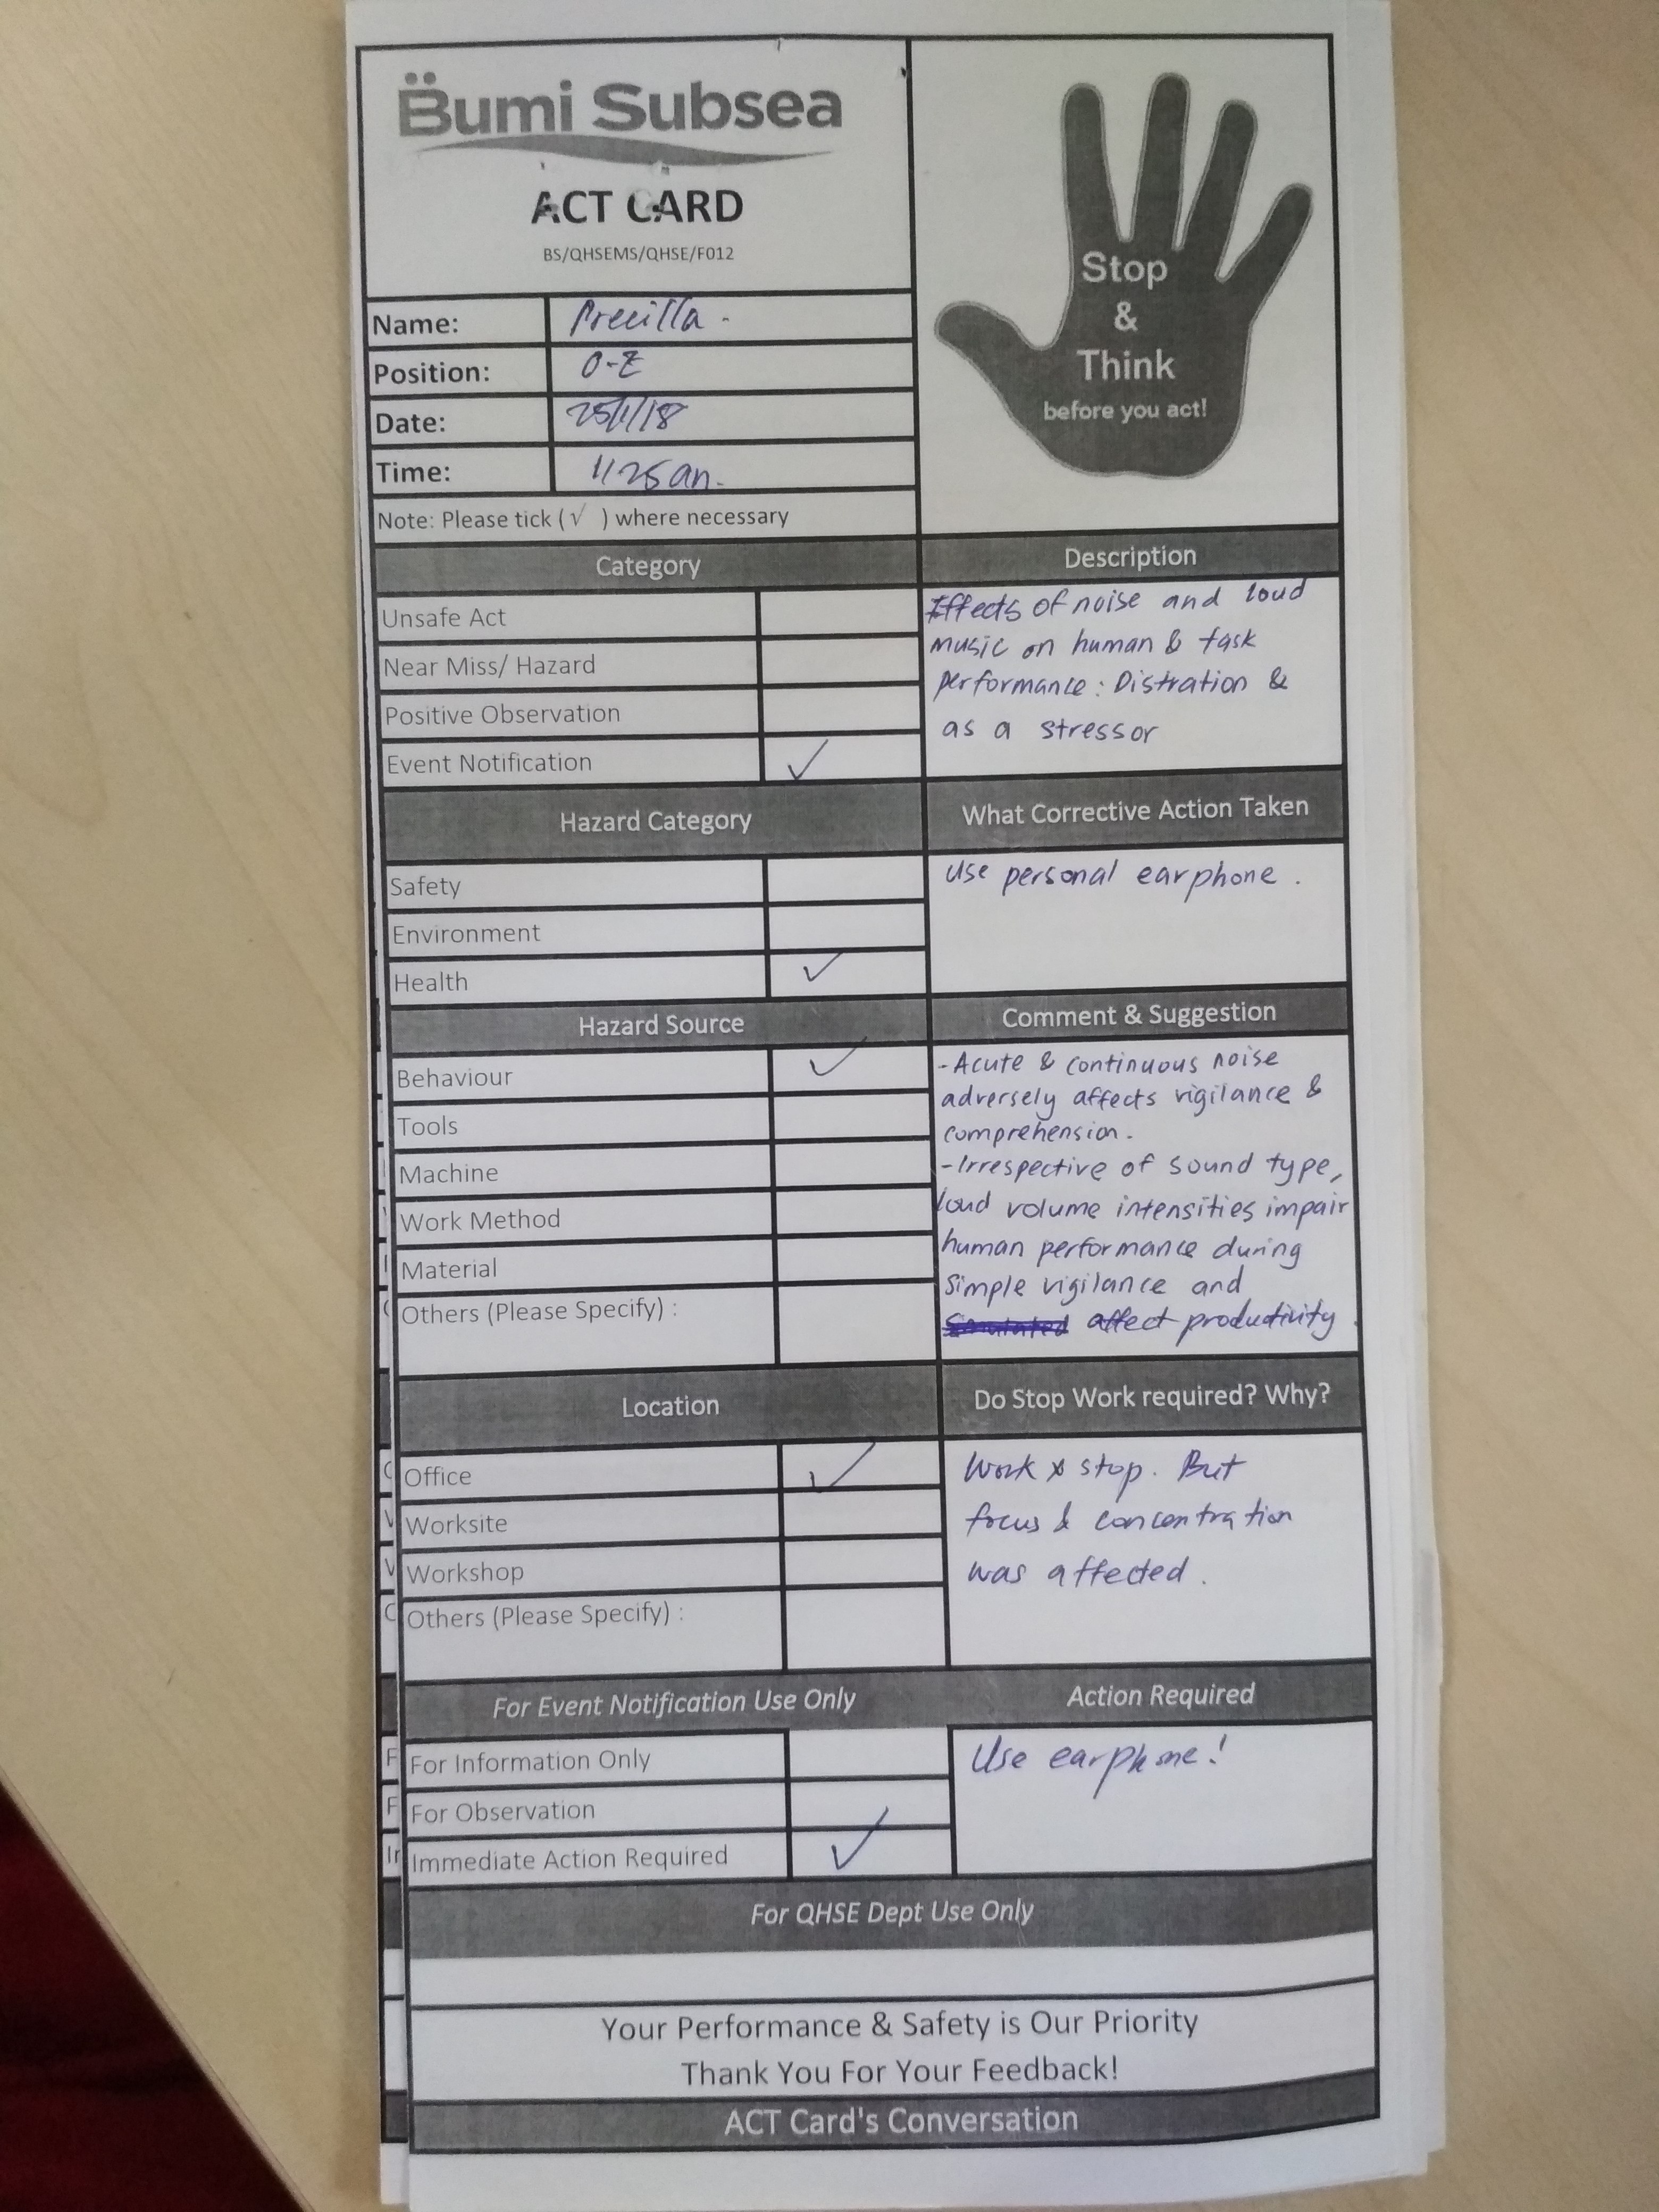 Bumi Subsea
ACT CARD
BS/QHSEMS/QHSE/F012
Stop
&
Think
before you act!
Name: Precilla -
Position: O-E
Date: 25/1/18
Time: 1125 am.
Note: Please tick (√ ) where necessary
Category
Unsafe Act
Near Miss/ Hazard
Positive Observation
Event Notification ✓
Description
Effects of noise and loud
music on human & task
performance: Distration &
as a stressor
Hazard Category
Safety
Environment
Health ✓
What Corrective Action Taken
Use personal earphone.
Hazard Source
Behaviour ✓
Tools
Machine
Work Method
Material
Others (Please Specify) :
Comment & Suggestion
-Acute & continuous noise
adversely affects vigilance &
comprehension.
-Irrespective of sound type,
loud volume intensities impair
human performance during
simple vigilance and
affect productivity.
Location
Office ✓
Worksite
Workshop
Others (Please Specify) :
Do Stop Work required? Why?
Work x stop. But
focus & concentration
was affected.
For Event Notification Use Only
For Information Only
For Observation
Immediate Action Required ✓
Action Required
Use earphone!
For QHSE Dept Use Only
Your Performance & Safety is Our Priority
Thank You For Your Feedback!
ACT Card's Conversation